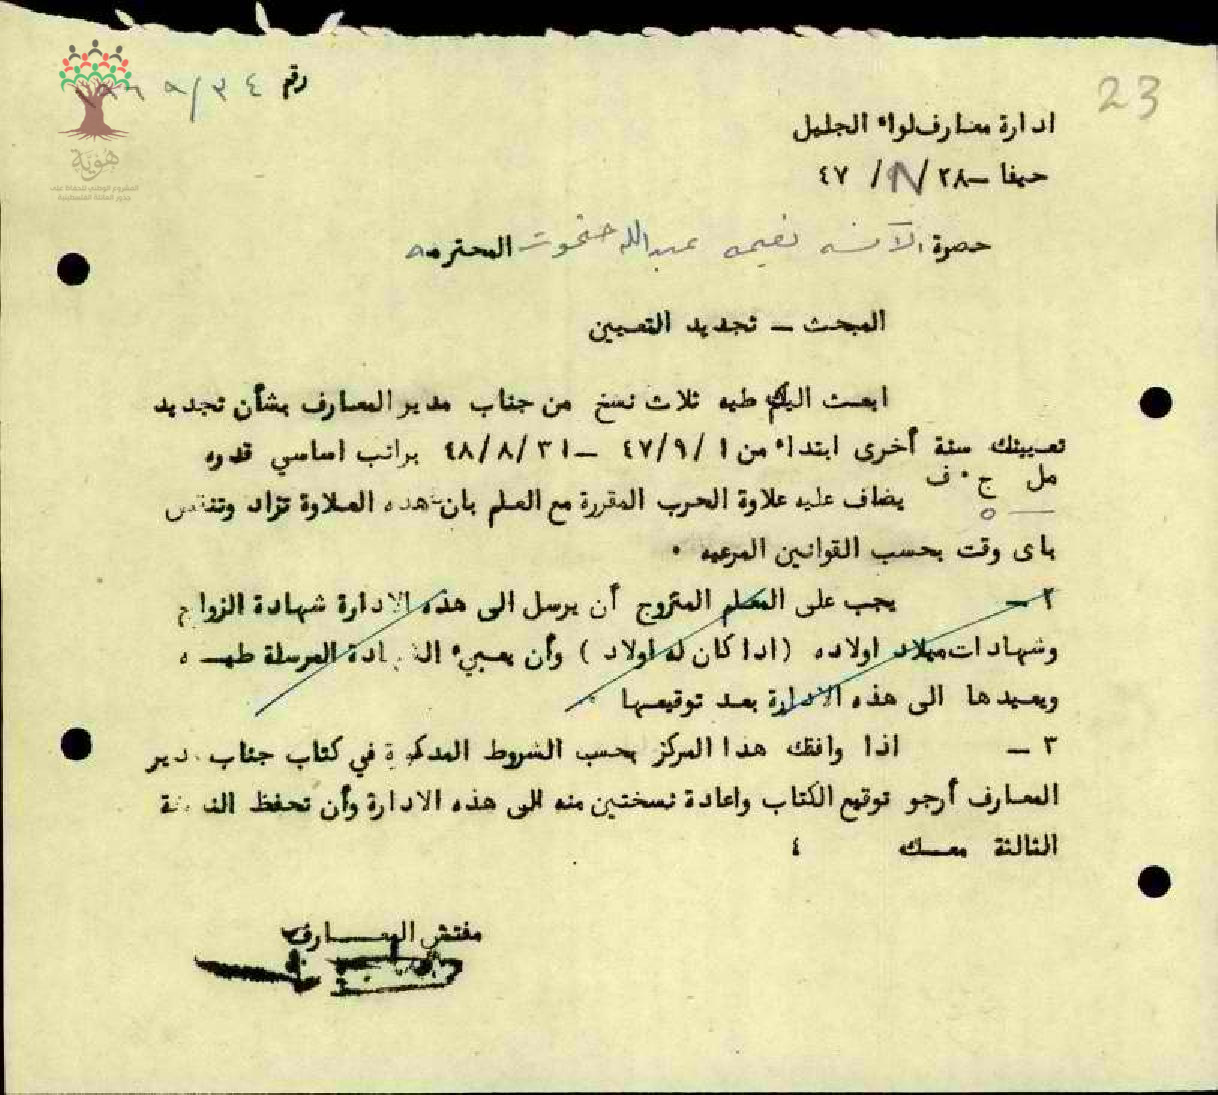 23
رقم ٣٤/٩
هُوِيَّة
المشروع الوطني للحفاظ على
جذور العائلة الفلسطينية
ادارة معارف لواء الجليل
حيفا – ٢٨/ /٤٧
حضرة الآنسه نعيمه عبدالله المحترمه
المبحث – تجديد التعيين
ابعث اليك طيه ثلاث نسخ من جناب مدير المعارف بشأن تجديد
تعيينك سنة أخرى ابتداء من ٤٧/٩/١ – ٤٨/٨/٣١ براتب اساسي قدره
مل ج٠ ف
— ٥ يضاف عليه علاوة الحرب المقررة مع العلم بان هذه العلاوة تزاد وتنقص
باى وقت بحسب القوانين المرعيه ٠
٢ – يجب على المعلم المتزوج أن يرسل الى هذه الادارة شهادة الزواج
وشهادات ميلاد اولاده (اذا كان له اولاد ) وأن يعبيء الشهادة المرسلة طيـه
ويعيدها الى هذه الادارة بعد توقيعها ٠
٣ – اذا وافقك هذا المركز بحسب الشروط المذكورة في كتاب جناب مدير
المعارف أرجو توقيع الكتاب واعادة نسختين منه الى هذه الادارة وأن تحفظ النسخة
الثالثة معـك ٤
مفتش المعـــارف